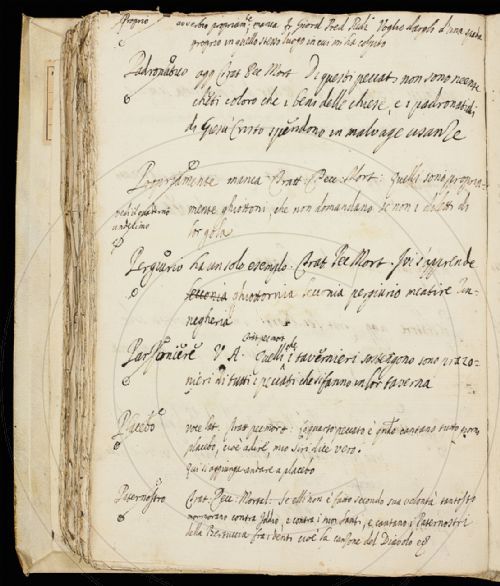 Proprio avverbio propriam.te manca Fr Giord Pred Redi Voglio dargli d'una spada
proprio in quello stesso luogo in cui mi ha colpito
Padronatico agg Trat Pec Mort Di questi peccati non sono neente
cheti coloro che i beni delle chiese, e i padronatichi
di Giesù Cristo spendono in malvage usanze
manca Tratt. Pecc. Mort: Quelli sono propria-
mente ghiottoni, che non domandano se non i diletti di
lor gola
Pergiurio ha un solo esempio. Trat Pec Mort. Ivi s'apprende
ghiottornia pergiurio mentire
Parsoniere V. A. Trat pec mort Quelli tavernieri sostegono sono parzo-
nieri di tutti i peccati che si fanno in lor taverna
Placebo voce lat. Trat pec mort: Il quarto peccato è q.do cantano tutto giorno
placebo, cioè a dire, mio siri dice vero.
Qui s'aggiunga cantare a placebo
Paternostro Trat. Pec. Mortal. Se elli non è fatto secondo sua volontà tantosto
mormorano contra Iddio, e contra i suoi santi, e cantano i Paternostri
della Bertuccia fra' denti cioè la canzone del Diavolo